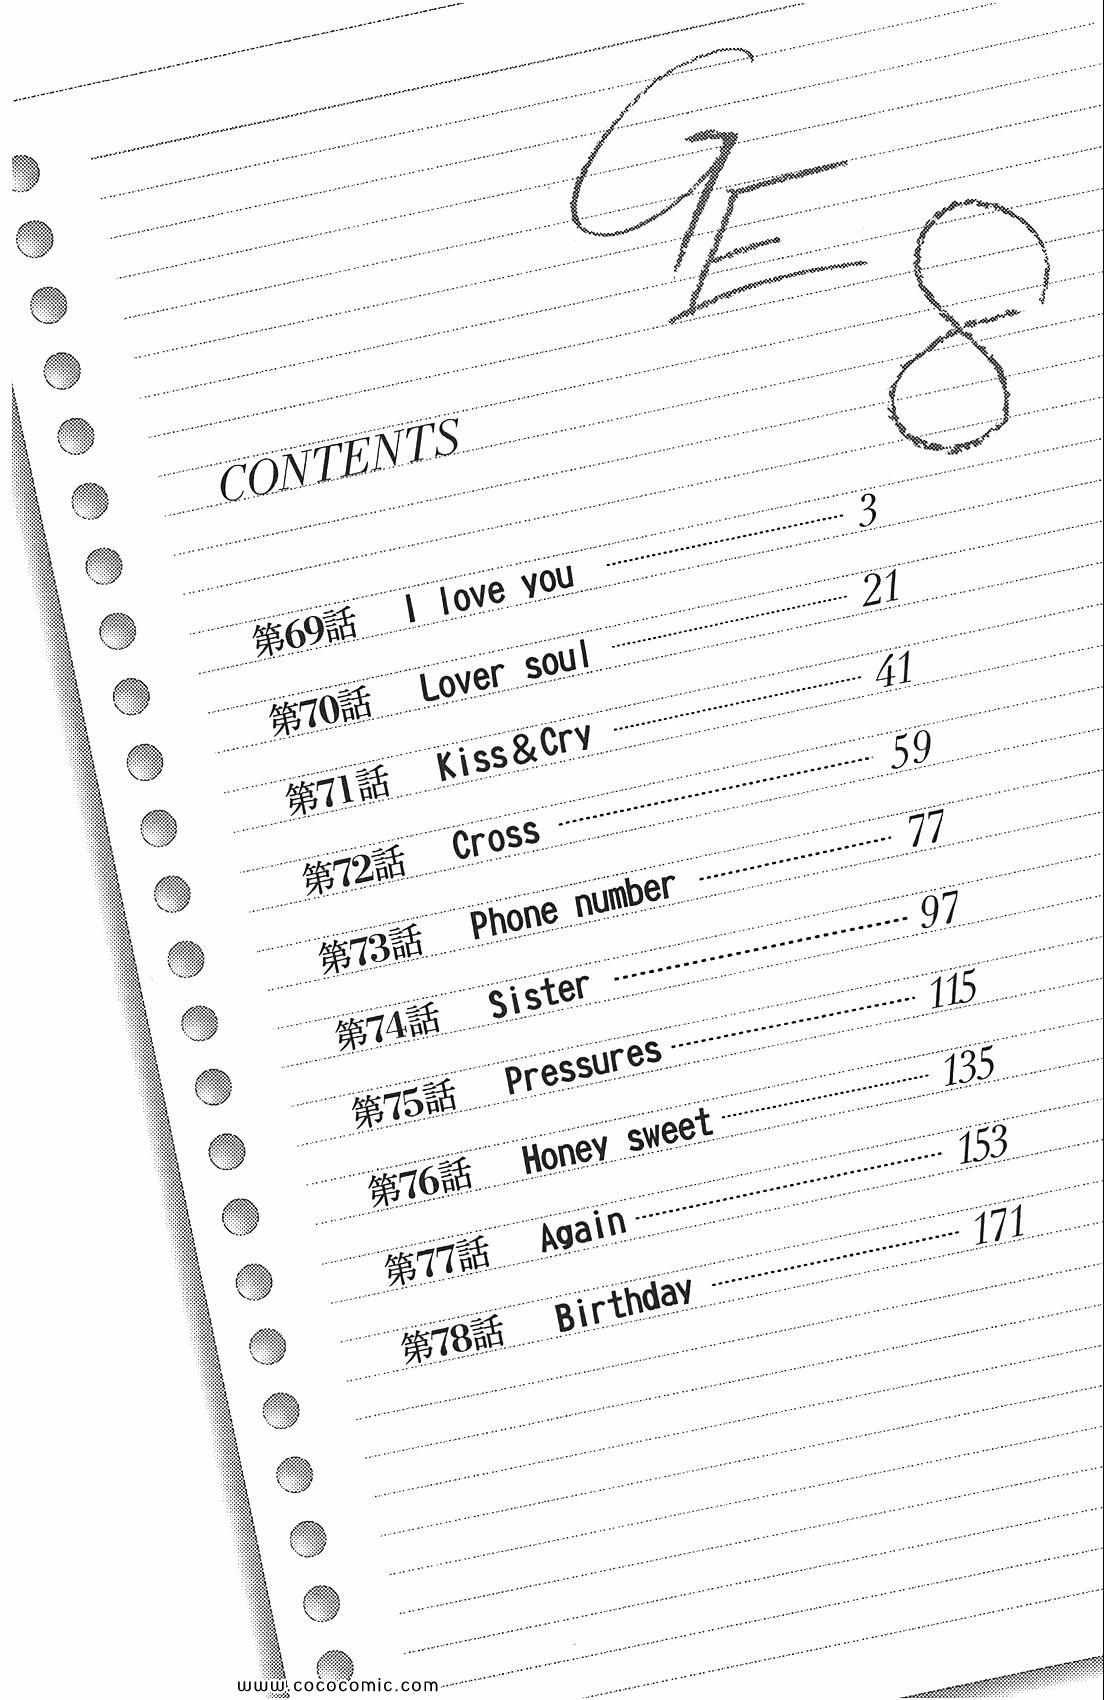 GE
8
CONTENTS
第69話 I love you 3
第70話 Lover soul 21
第71話 Kiss&Cry 41
第72話 Cross 59
第73話 Phone number 77
第74話 Sister 97
第75話 Pressures 115
第76話 Honey sweet 135
第77話 Again 153
第78話 Birthday 171
www.cococomic.com